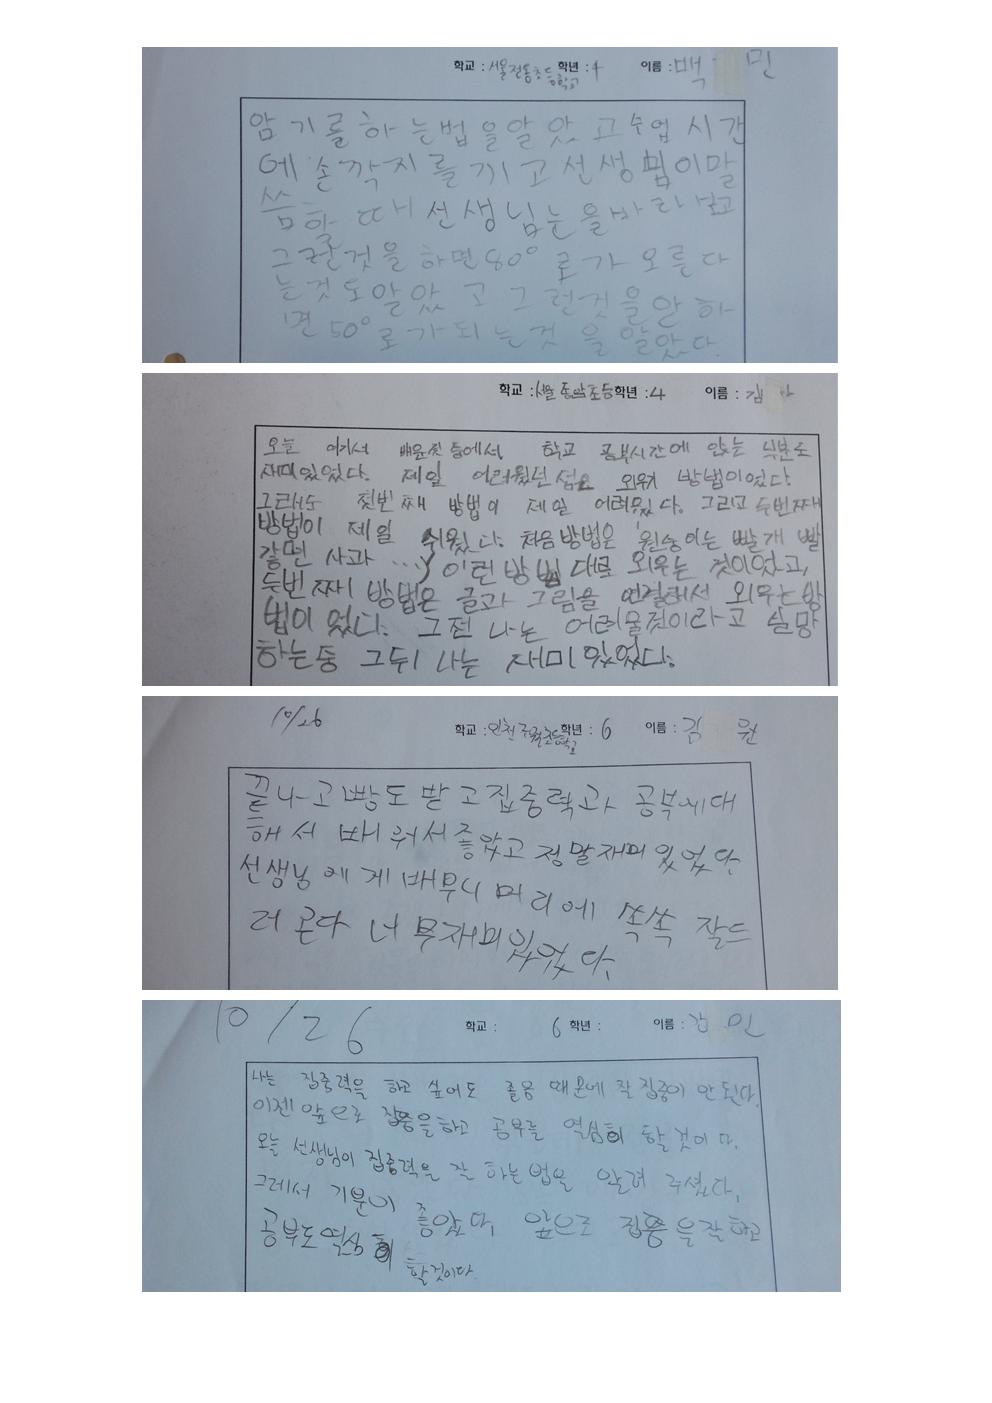 학교 : 서울전동초등학교 학년 : 4 이름 : 백 민
암기를하는법을알았고수업시간
에손깍지를끼고선생님이말
씀할때선생님눈을바라보고
그런것을하면80°로가오른다
는것도알았고그런것을안하
면50°로가되는것을알았다.
학교 : 서울 초등 학년 : 4 이름 : 김 아
오늘 여기서 배운것 중에서 학교 공부시간에 앉는 부분도
재미있었다. 제일 어려웠던 점은 외워 방법이었다
그래도 첫번째 방법이 제일 어려웠다. 그리고 두번째
방법이 제일 쉬웠다. 처음방법은 '원숭이는 빨개 빨
갛면 사과 …) 이런 방법 대로 외우는 것이었고,
두번째 방법은 글과 그림을 연결해서 외우는방
법이었다. 그전 나는 어려울것이라고 실망
하는중 그뒤 나는 재미있었다.
10/26
학교 : 인천 초등학교 학년 : 6 이름 : 김 원
끝나고빵도받고집중력과 공부에대
해서 배워서좋았고 정말재미있었다
선생님에게배우니 머리에 쏙쏙 잘드
러온다 너무재미있었다.
10/26
학교 : 6 학년 : 이름 : 김 민
나는 집중력을 하고 싶어도 졸음 때문에 잘 집중이 안 된다.
이젠 앞으로 집중을하고 공부를 열심히 할 것이다.
오늘 선생님이 집중력을 잘 하는법을 알려 주셨다.
그래서 기분이 좋았다. 앞으로 집중을잘하고
공부도열심히 할것이다.